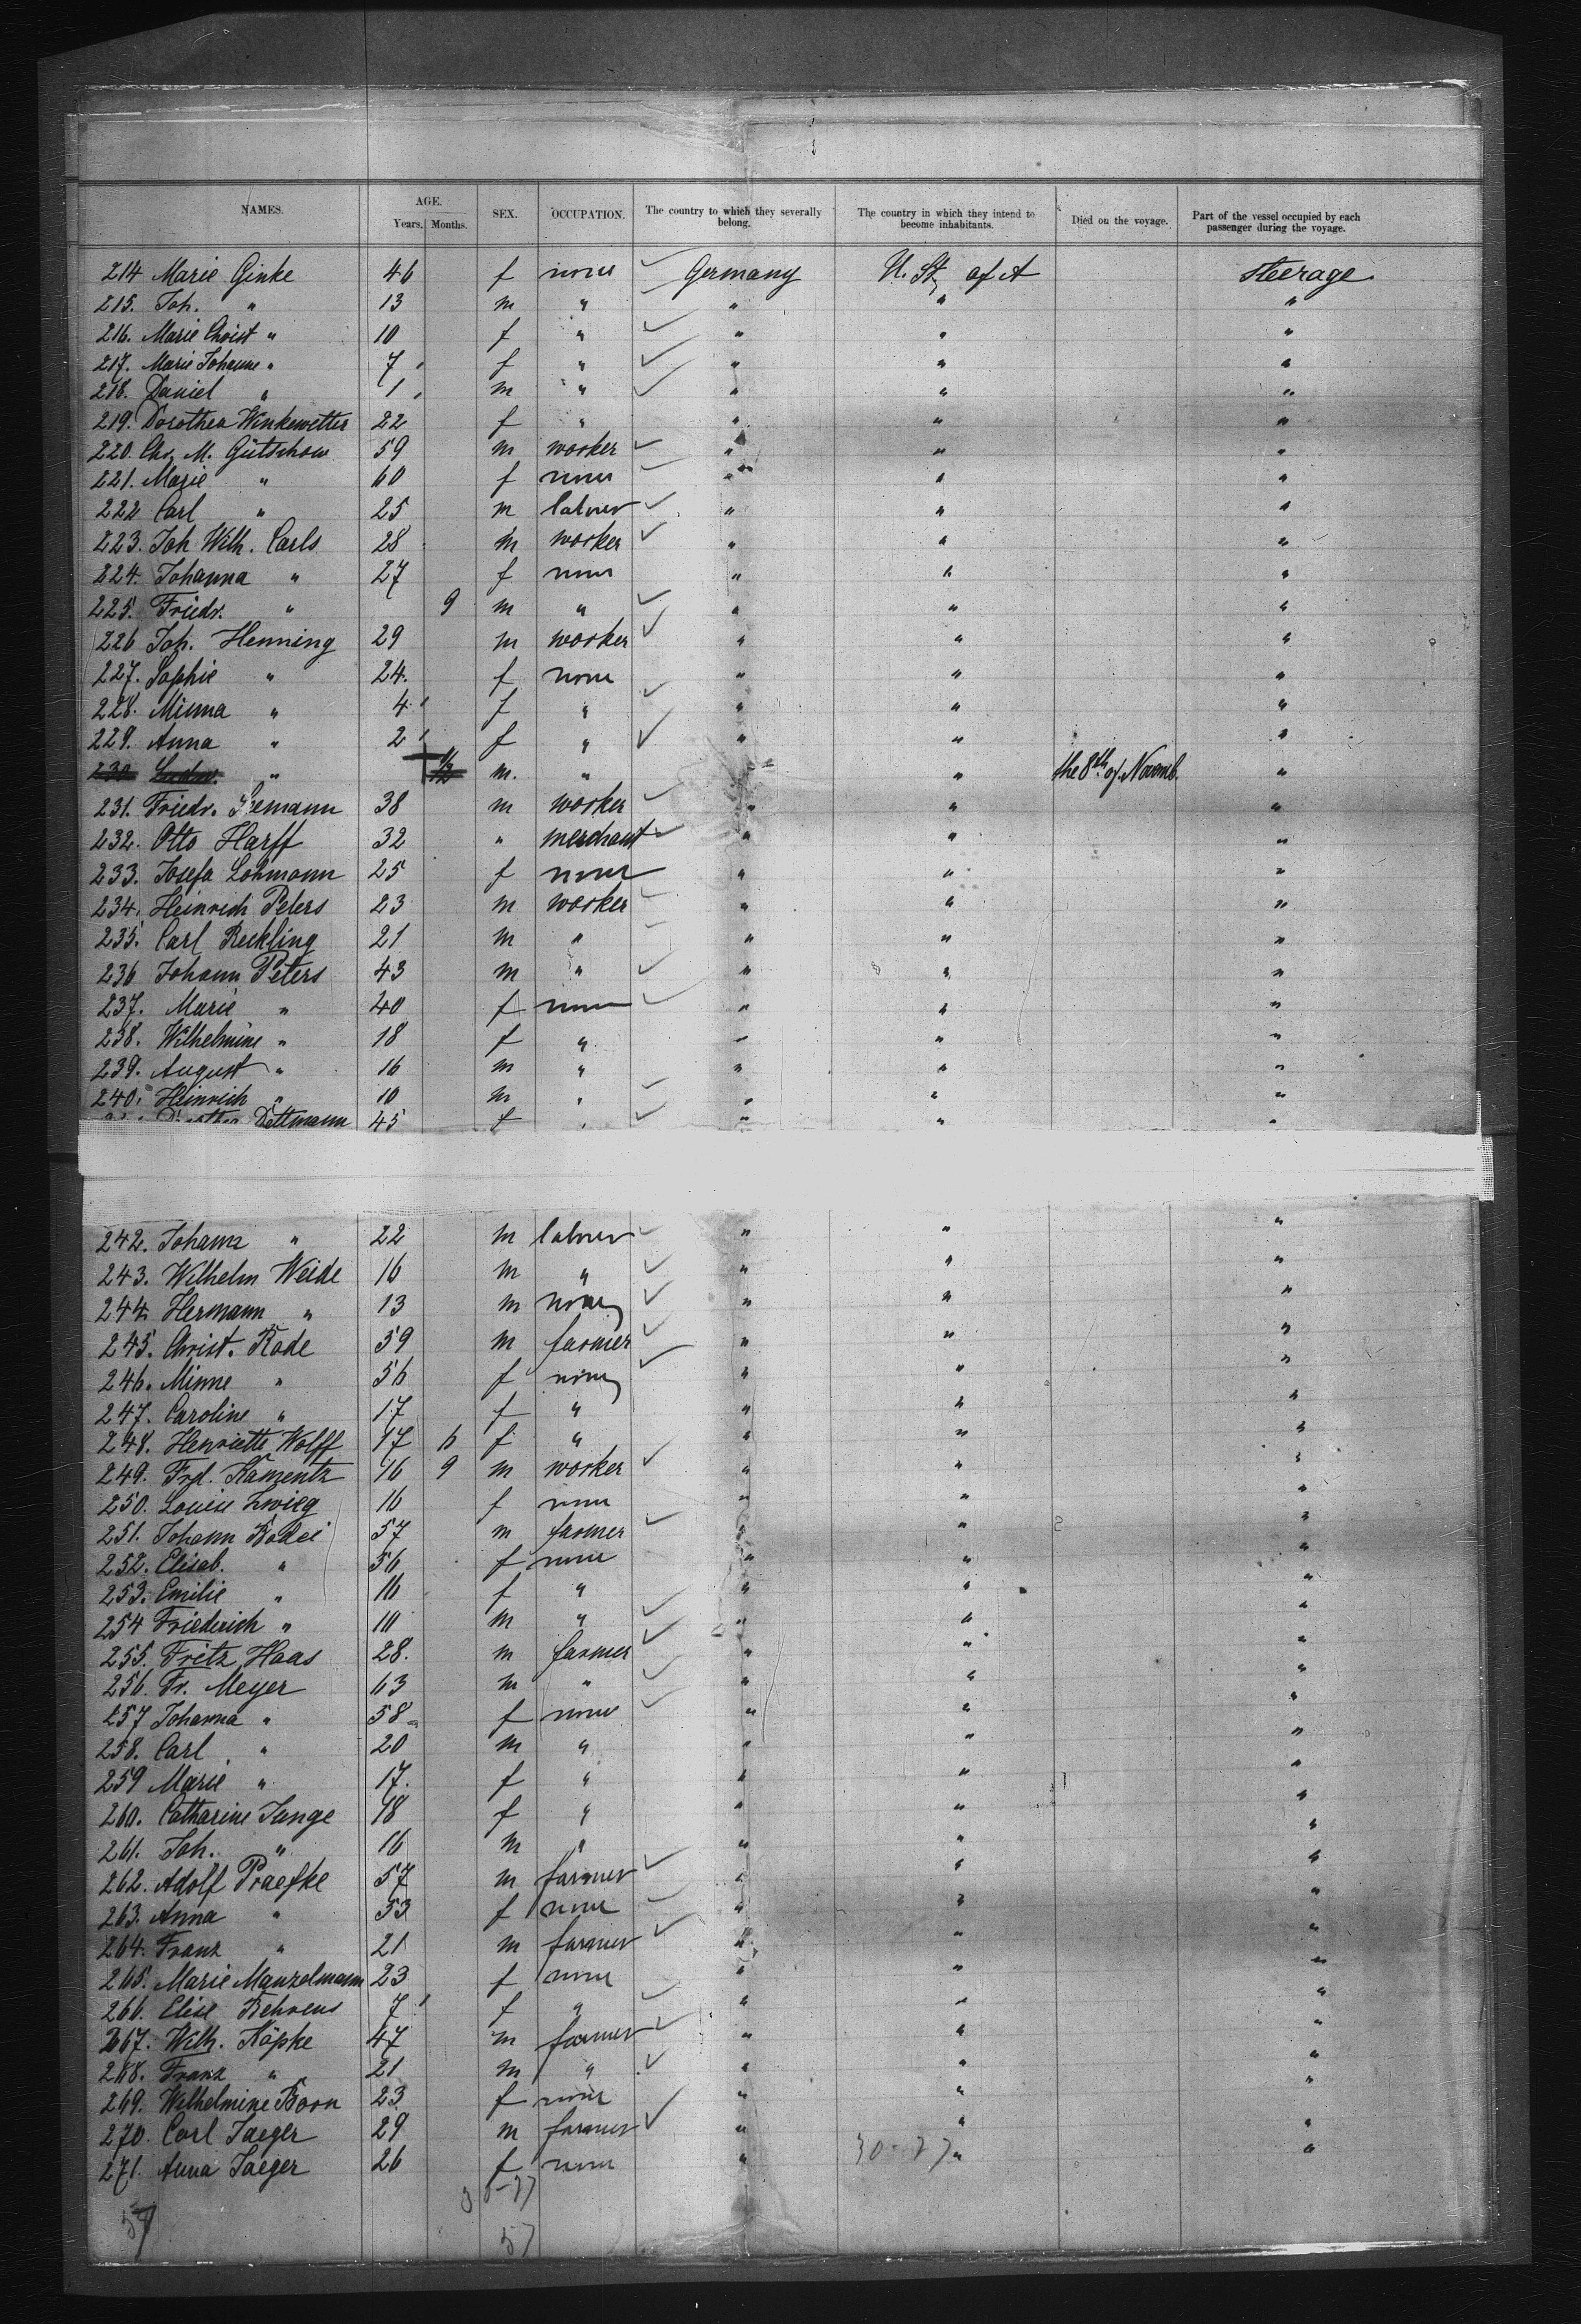 NAMES. AGE. SEX. OCCUPATION. The country to which they severally belong. The country in which they intend to become inhabitants. Died on the voyage. Part of the vessel occupied by each passenger during the voyage.
Years. Months.
214 Marie Ginke 46 f none Germany U. St. of A steerage
215. Joh. " 13 m " " " "
216. Marie Christ " 10 f " " " "
217. Marie Johanne " 7 f " " " "
218. Daniel " 1 m " " " "
219. Dorothea Winkewetter 22 f " " " "
220. Chr. M. Gütschow 59 m worker " " "
221. Marie " 60 f none " " "
222 Carl " 25 m labrer " " "
223. Joh Wilh. Carls 28 m worker " " "
224. Johanna " 27 f none " " "
225. Friedr. " 9 m " " " "
226 Joh. Henning 29 m worker " " "
227. Sophie " 24. f none " " "
228. Minna " 4 f " " " "
229. Anna " 2 f " " " "
230 Ludw. " 1/2 m. " " " the 8th of Novemb. "
231. Friedr. Seemann 38 m worker " " "
232. Otto Harff 32 " merchant " " "
233. Josefa Lohmann 25 f none " " "
234. Heinrich Peters 23 m worker " " "
235. Carl Reckling 21 m " " " "
236 Johann Peters 43 m " " " "
237. Marie " 40 f none " " "
238. Wilhelmine " 18 f " " " "
239. August " 16 m " " " "
240. Heinrich " 10 m " " " "
Dettmann 45 f " " " "
242. Johann " 22 m labrer " " "
243. Wilhelm Weide 16 m " " " "
244 Hermann " 13 m none " " "
245. Christ. Rode 59 m farmer " " "
246. Minne " 56 f none " " "
247. Caroline " 17 f " " " "
248. Henriette Wolff 17 6 f " " " "
249. Frd. Kamentz 16 9 m worker " " "
250. Louise Zwieg 16 f none " " "
251. Johann Badei 57 m farmer " " "
252. Elisab. " 56 f none " " "
253. Emilie " 16 f " " " "
254 Friederich " 10 m " " " "
255. Fritz Haas 28. m farmer " " "
256. Fr. Meyer 63 m " " " "
257 Johanna " 58 f none " " "
258. Carl " 20 m " " " "
259 Marie " 17. f " " " "
260. Catharine Junge 18 f " " " "
261. Joh. " 16 m " " " "
262. Adolf Praefke 57 m farmer " " "
263. Anna " 53 f none " " "
264. Franz " 21 m farmer " " "
265. Marie Manzelmann 23 f none " " "
266. Elise Behrens 7 f " " " "
267. Wilh. Köpke 47 m farmer " " "
268. Franz " 21 m " " " "
269. Wilhelmine Born 23 f none " " "
270. Carl Jaeger 29 m farmer " " "
271. Anna Jaeger 26 f none " " "
30-27
57
57